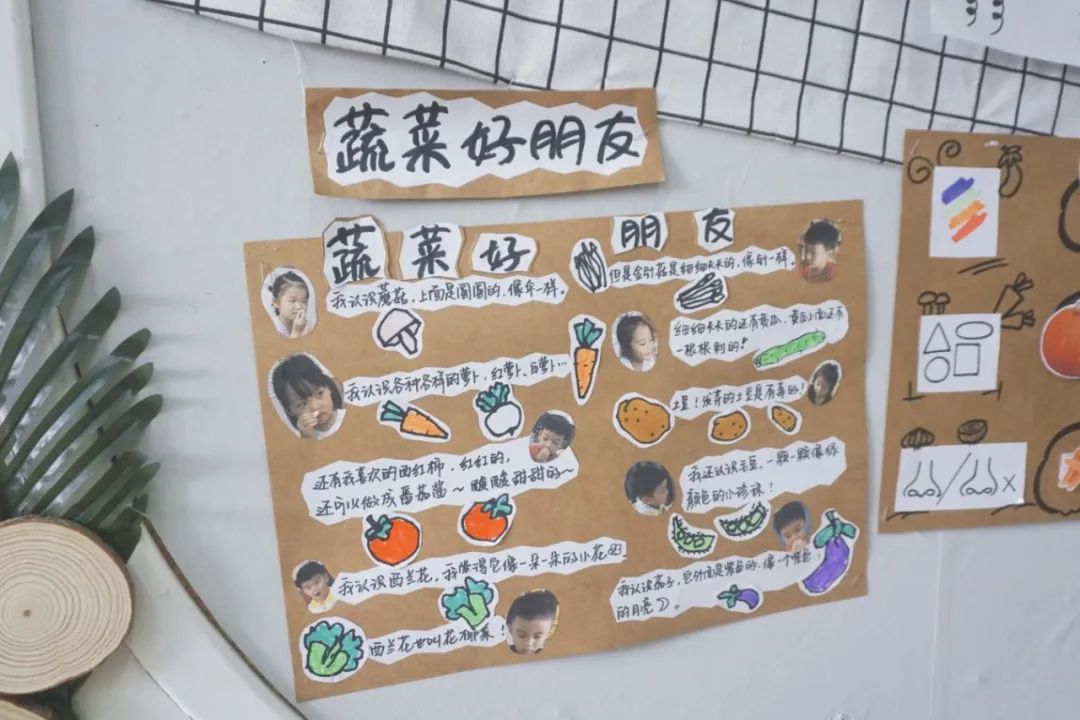 蔬菜好朋友
蔬菜好朋友
我认识蘑菇，上面是圆圆的，像伞一样。
我认识各种各样的萝卜，红萝卜，白萝卜…
还有我喜欢的西红柿，红红的，
还可以做成番茄酱～酸酸甜甜的～
我认识西兰花，我觉得它像一朵一朵的小花
西兰花也叫花椰菜！
但是金针菇是细细长长的，像针一样。
细细长长的还有黄瓜，黄瓜上面还有
一根根刺的！
土豆！发芽的土豆是有毒的！
我还认识毛豆，一颗一颗像绿
颜色的小珍珠！
我认识茄子，它外面是紫色的，像一个紫色
的月亮。